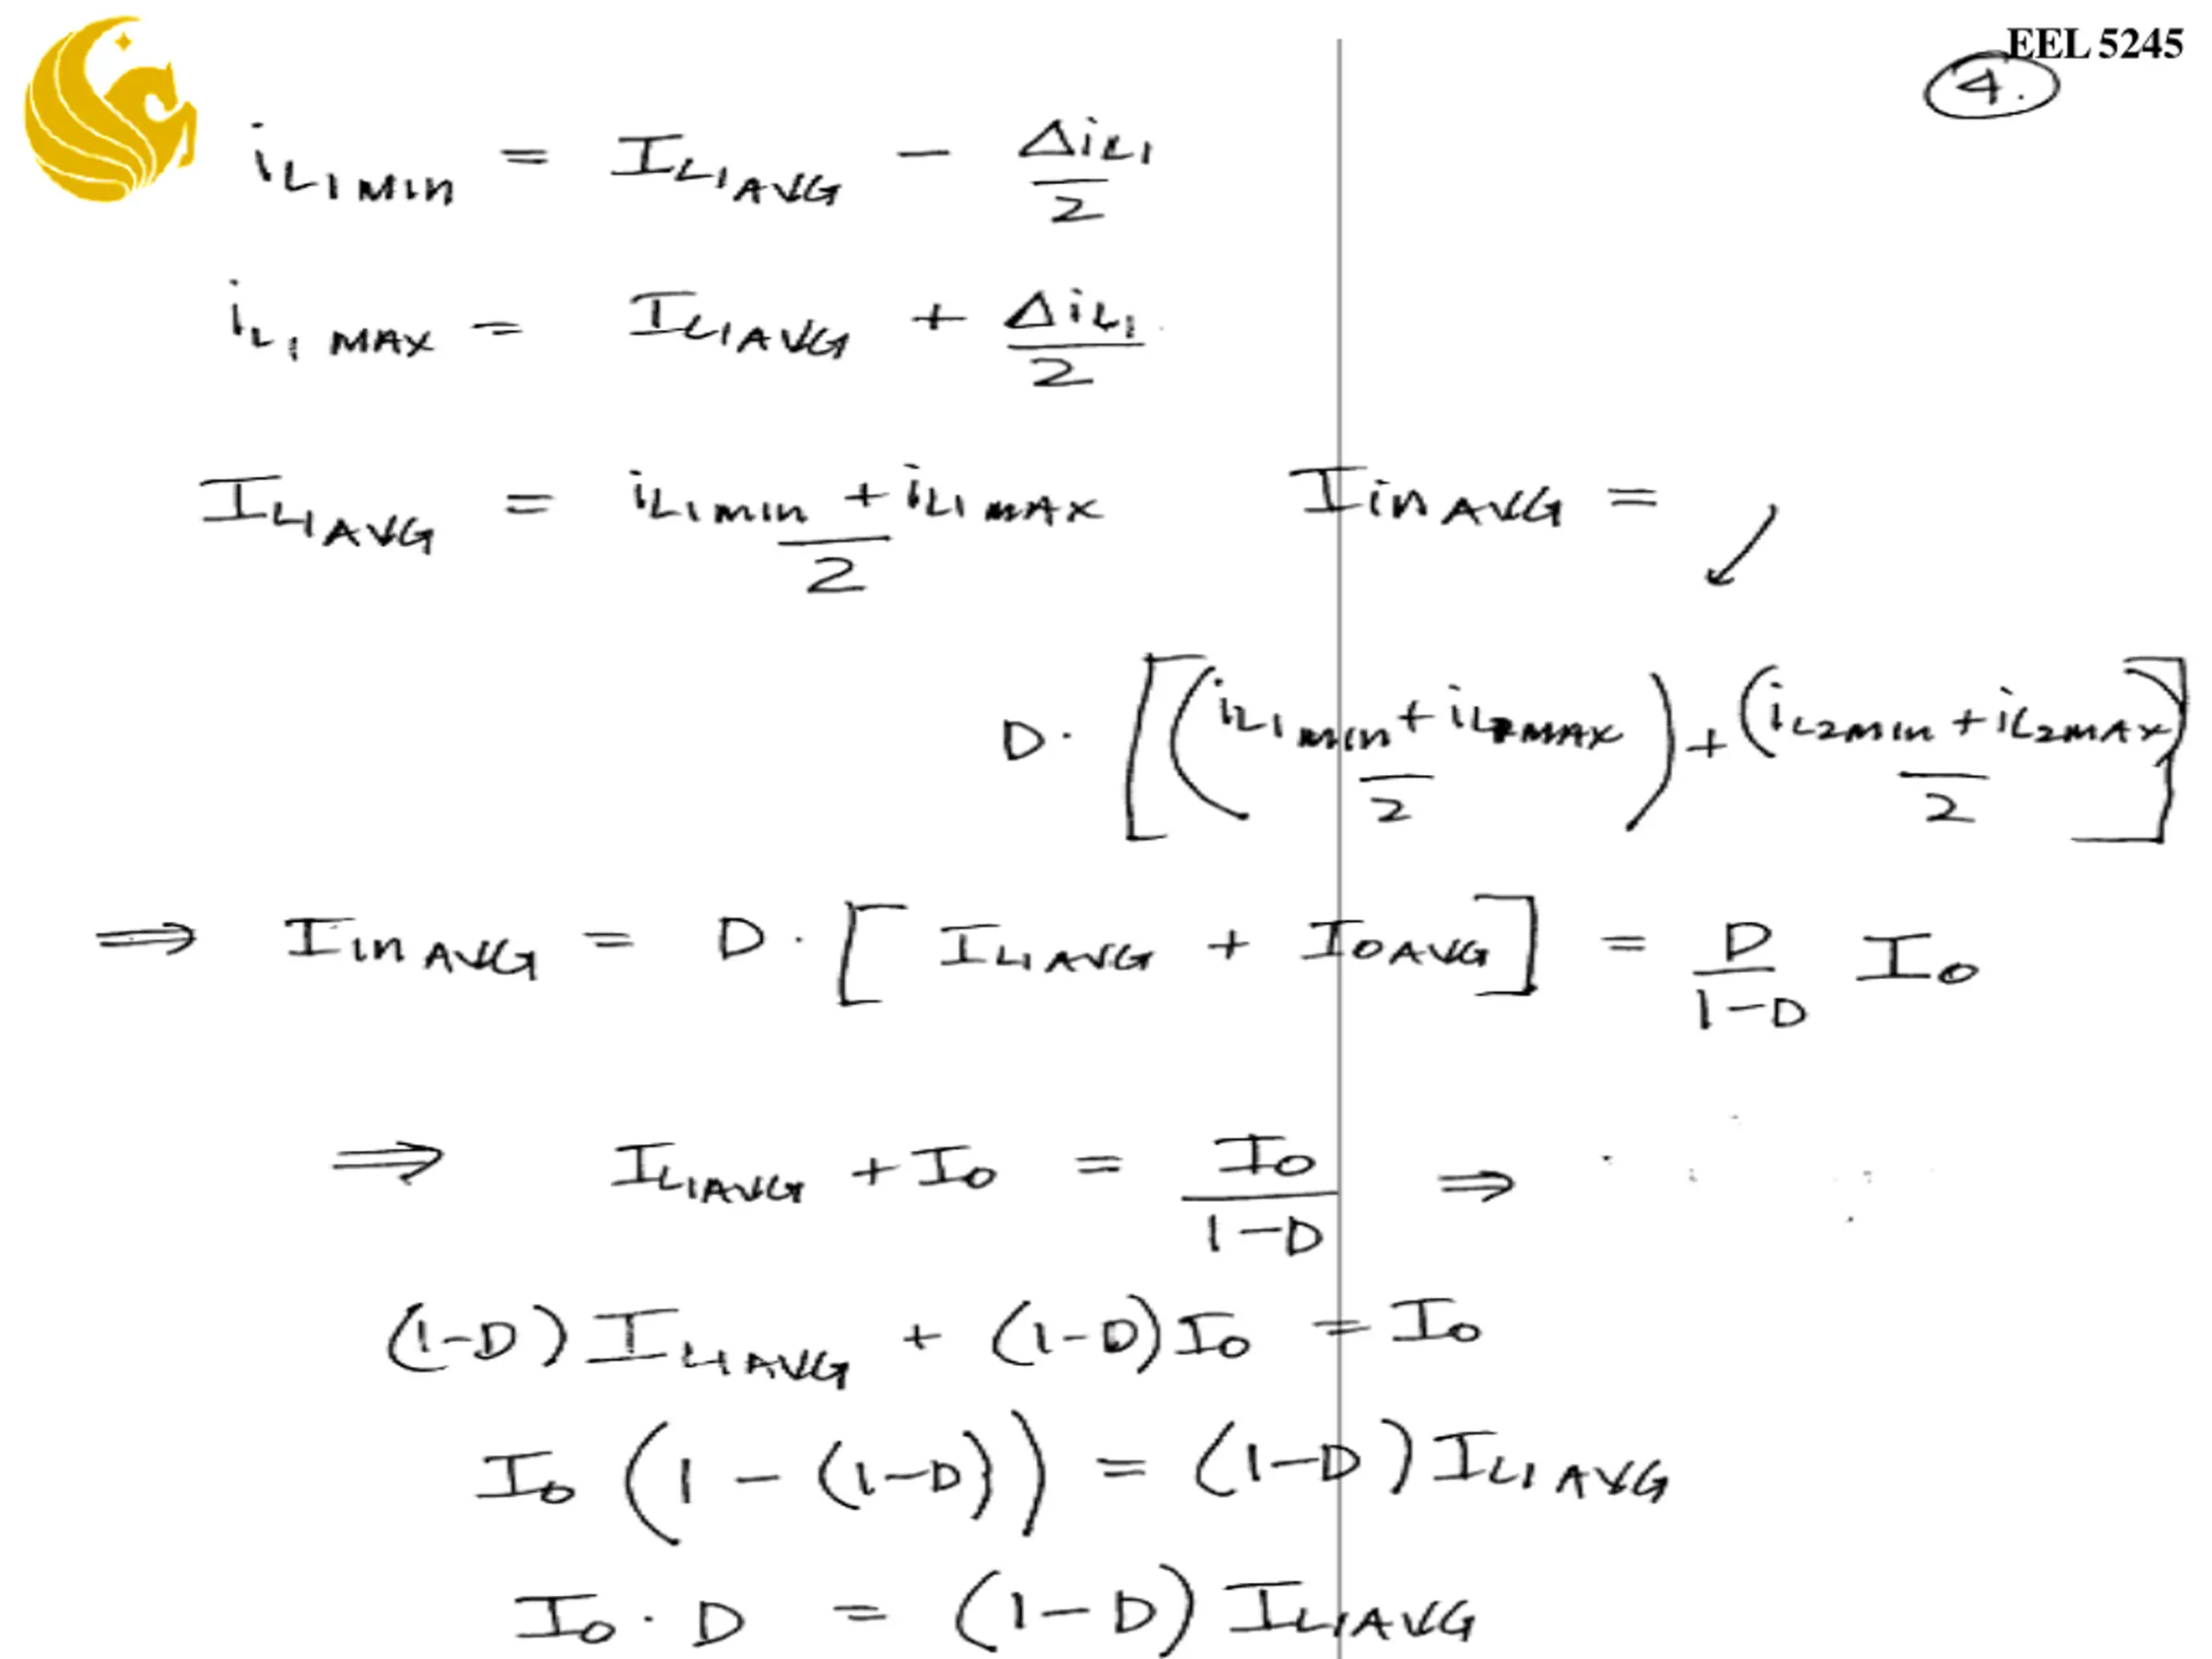 EEL 5245
4.
iL1MIN = IL1AVG - ΔiL1/2
iL1MAX = IL1AVG + ΔiL1/2
IL1AVG = (iL1MIN + iL1MAX)/2    IinAVG = ↙
D · [((iL1MIN + iL1MAX)/2) + ((iL2MIN + iL2MAX)/2)]
⇒ IinAVG = D · [IL1AVG + IOAVG] = D/(1-D) Io
⇒ IL1AVG + Io = Io/(1-D) ⇒
(1-D) IL1AVG + (1-D) Io = Io
Io (1 - (1-D)) = (1-D) IL1AVG
Io · D = (1-D) IL1AVG